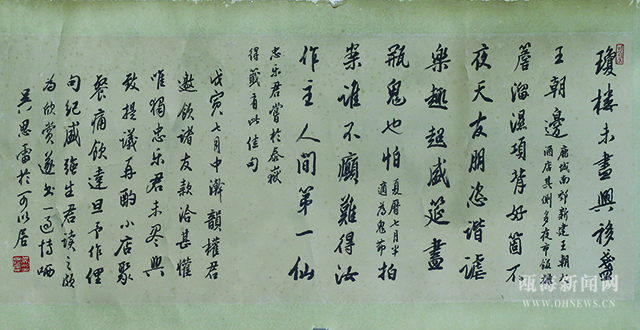 瓊樓未盡興移盞
王朝邊
鹿城南郊新建王朝大
酒店其側多夜市飯攤
簷溜濕項背好箇不
夜天友朋恣諧謔
樂趣超盛筵盡
瓶鬼也怕
夏曆七月半
適為鬼節
拍
案誰不癲難得汝
作主人間第一仙
忠乐君嘗於泰嶽
得籤有此佳句
戊寅七月中濟韻權君
邀飲諸友款洽甚懽
唯獨忠乐君未尽興
致提議再酌小店聚
餐痛飲達旦予作俚
句紀盛強生君讀之頗
為欣賞遂書一過博哂
吳思雷於可以居
瓯海新闻网
WWW.OHNEWS.CN